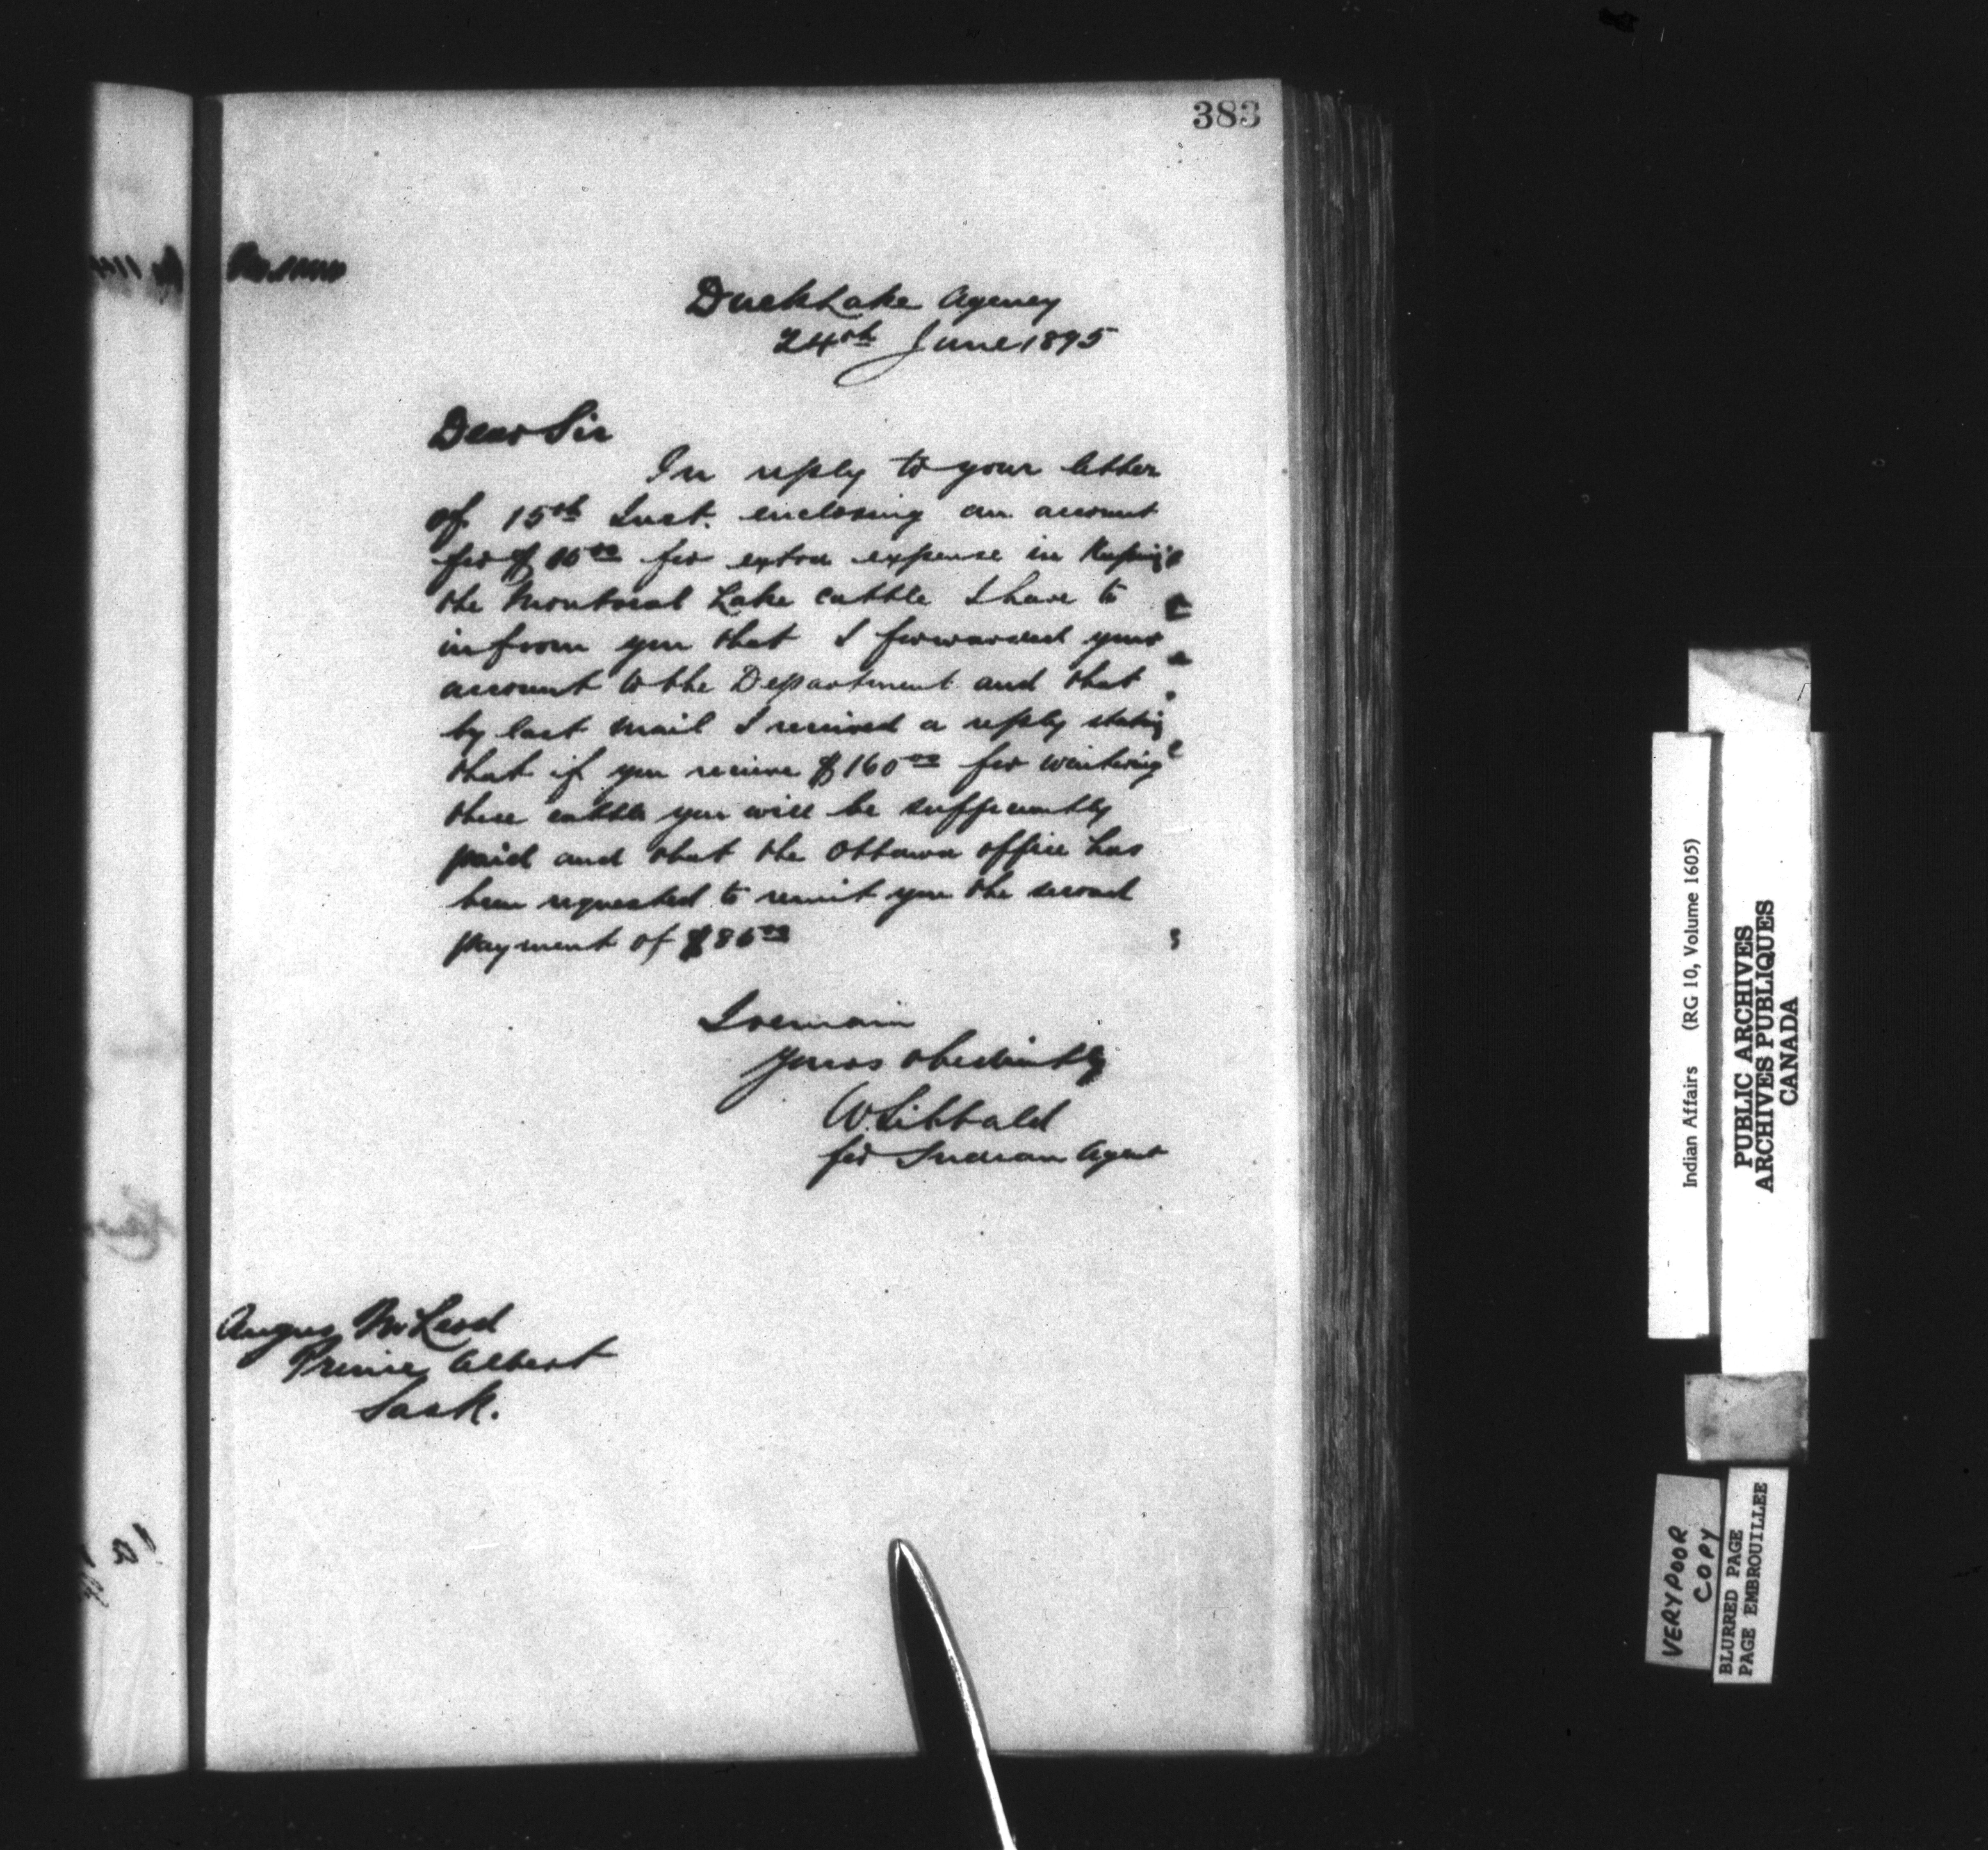 383
Duck Lake Agency
24th June 1895
Dear Sir
In reply to your letter
of 15th Inst. enclosing an account
for $ for extra expense in Keeping
the Montreal Lake cattle I have to
infrom you that I forwarded your
account to the Department and that
by last mail I received a reply stating
that if you receive $160 00 for wintering
these cattle you will be sufficiently
paid and that the Ottawa office has
been requested to remit you the second
payment of $
I remain
Yours obediently
W. Sibbald
for Indian Agent
Angus McLeod
Prince Albert
Sask.
Indian Affairs (RG 10, Volume 1605)
PUBLIC ARCHIVES
ARCHIVES PUBLIQUES
CANADA
VERY POOR
COPY
BLURRED PAGE
PAGE EMBROUILLEE